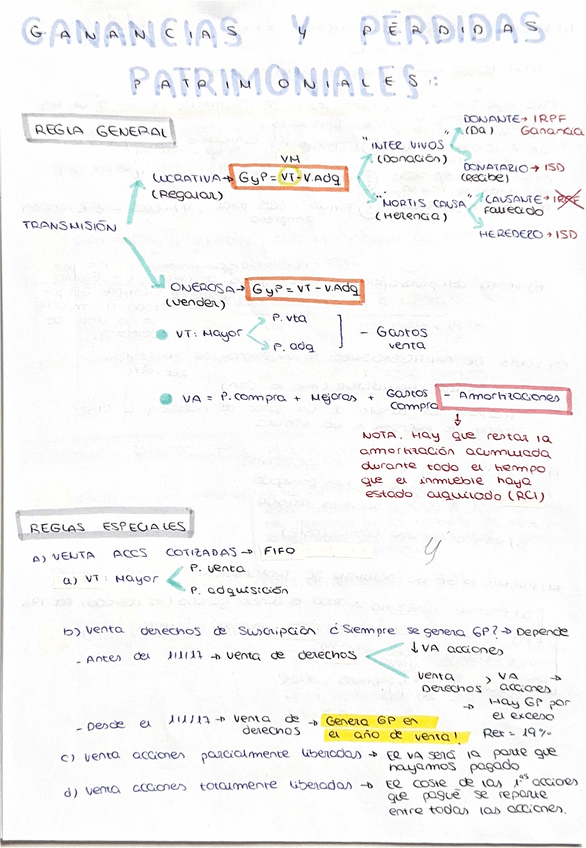 GANANCIAS Y PÉRDIDAS
PATRIMONIALES:
REGLA GENERAL
TRANSMISIÓN
LUCRATIVA → GyP = VT - V.Adq
(Regalar)
VM
"INTER VIVOS"
(Donación)
DONANTE → IRPF
(Da) Ganancia
DONATARIO → ISD
(Recibe)
"MORTIS CAUSA"
(Herencia)
CAUSANTE → IRPF
Fallecido
HEREDERO → ISD
ONEROSA → GyP = VT - V.Adq
(vender)
VT: Mayor
P. vta
P. adq
- Gastos
venta
VA = P. compra + Mejoras + Gastos - Amortizaciones
compra
NOTA. Hay que restar la
amortización acumulada
durante todo el tiempo
que el inmueble haya
estado alquilado (RCI)
REGLAS ESPECIALES
A) VENTA ACCS COTIZADAS → FIFO
a) VT: Mayor
P. venta
P. adquisición
b) Venta derechos de suscripción ¿Siempre se genera GP? → Depende
- Antes del 1/1/17 → Venta de derechos
↓ VA acciones
Venta > VA →
Derechos acciones
→ Hay GP por
el exceso
- Desde el 1/1/17 → Venta de → Genera GP en
derechos el año de venta! Ret = 19%
c) Venta acciones parcialmente liberadas → El VA será la parte que
hayamos pagado
d) Venta acciones totalmente liberadas → El coste de las 1ªs acciones
que pagué se reparte
entre todas las acciones.